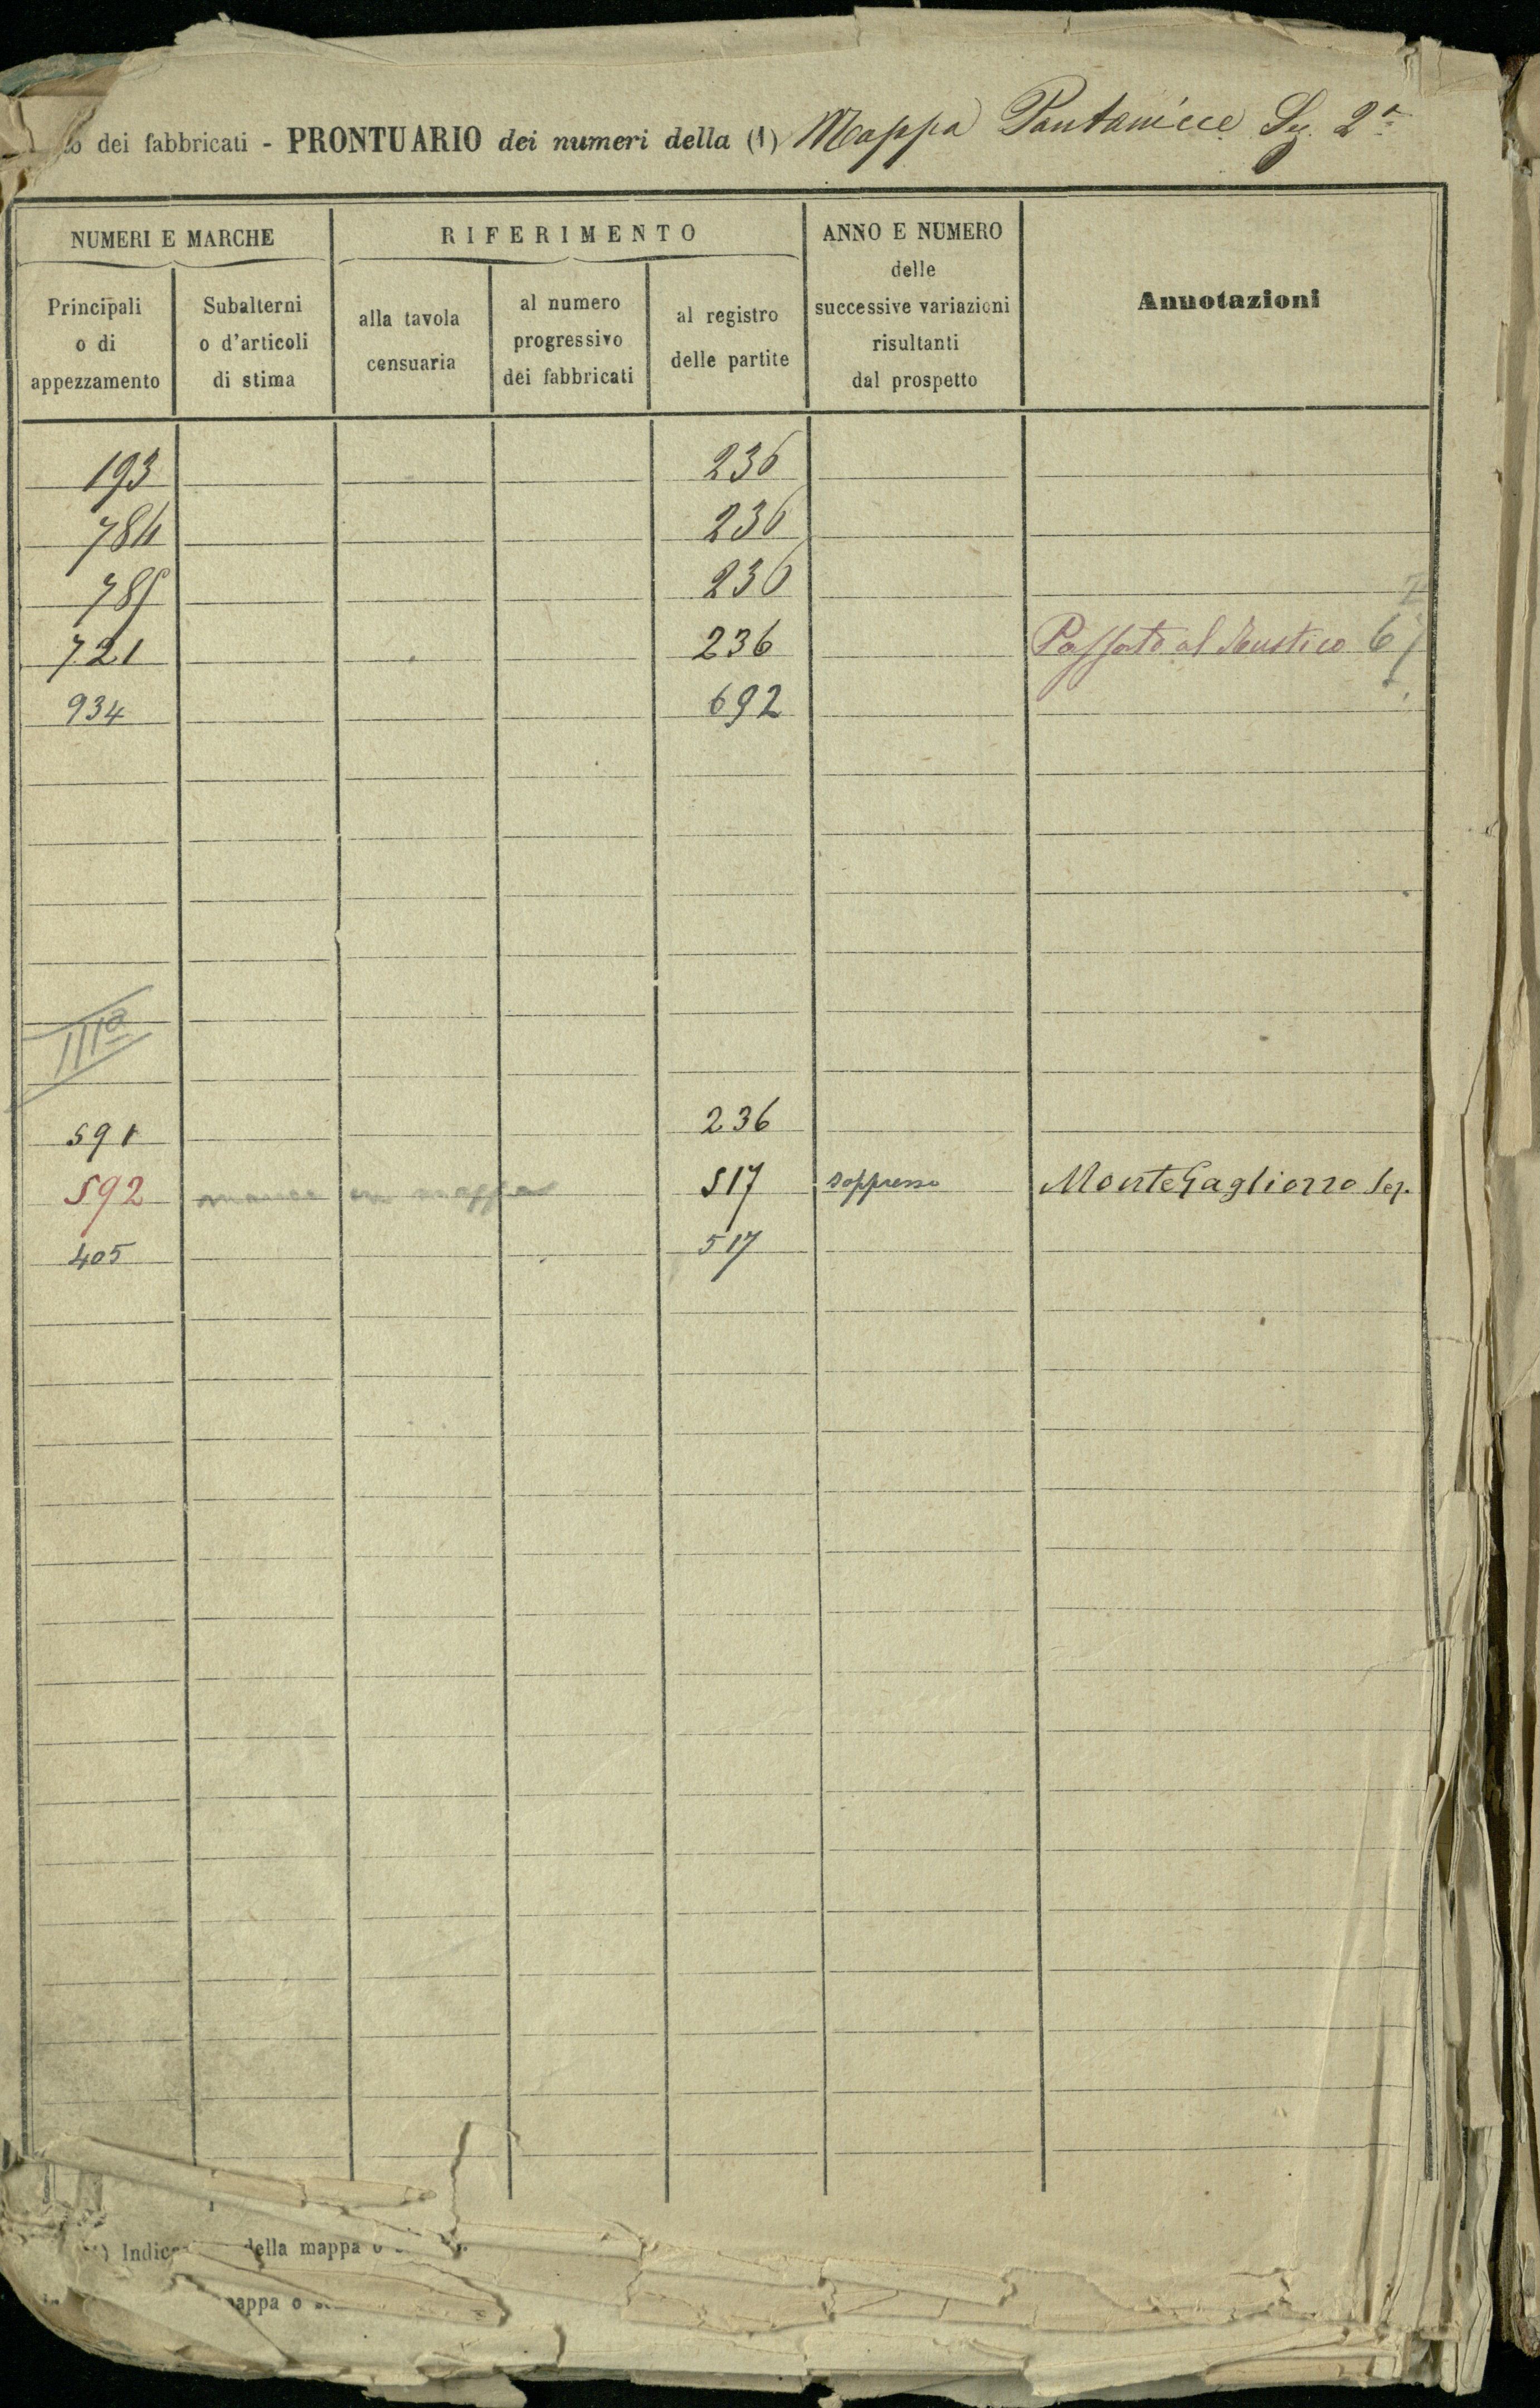 dei fabbricati - PRONTUARIO dei numeri della (1) Mappa Pantanicce Sez. 2a
NUMERI E MARCHE
RIFERIMENTO
ANNO E NUMERO
delle
successive variazioni
risultanti
dal prospetto
Annotazioni
Principali
o di
appezzamento
Subalterni
o d'articoli
di stima
alla tavola
censuaria
al numero
progressivo
dei fabbricati
al registro
delle partite
193 236
784 236
785 236
721 236 Passato al Rustico 67
934 692
IIIa
591 236
592 manca in mappa 517 soppresso Sez.
405 517
della mappa o
mappa o